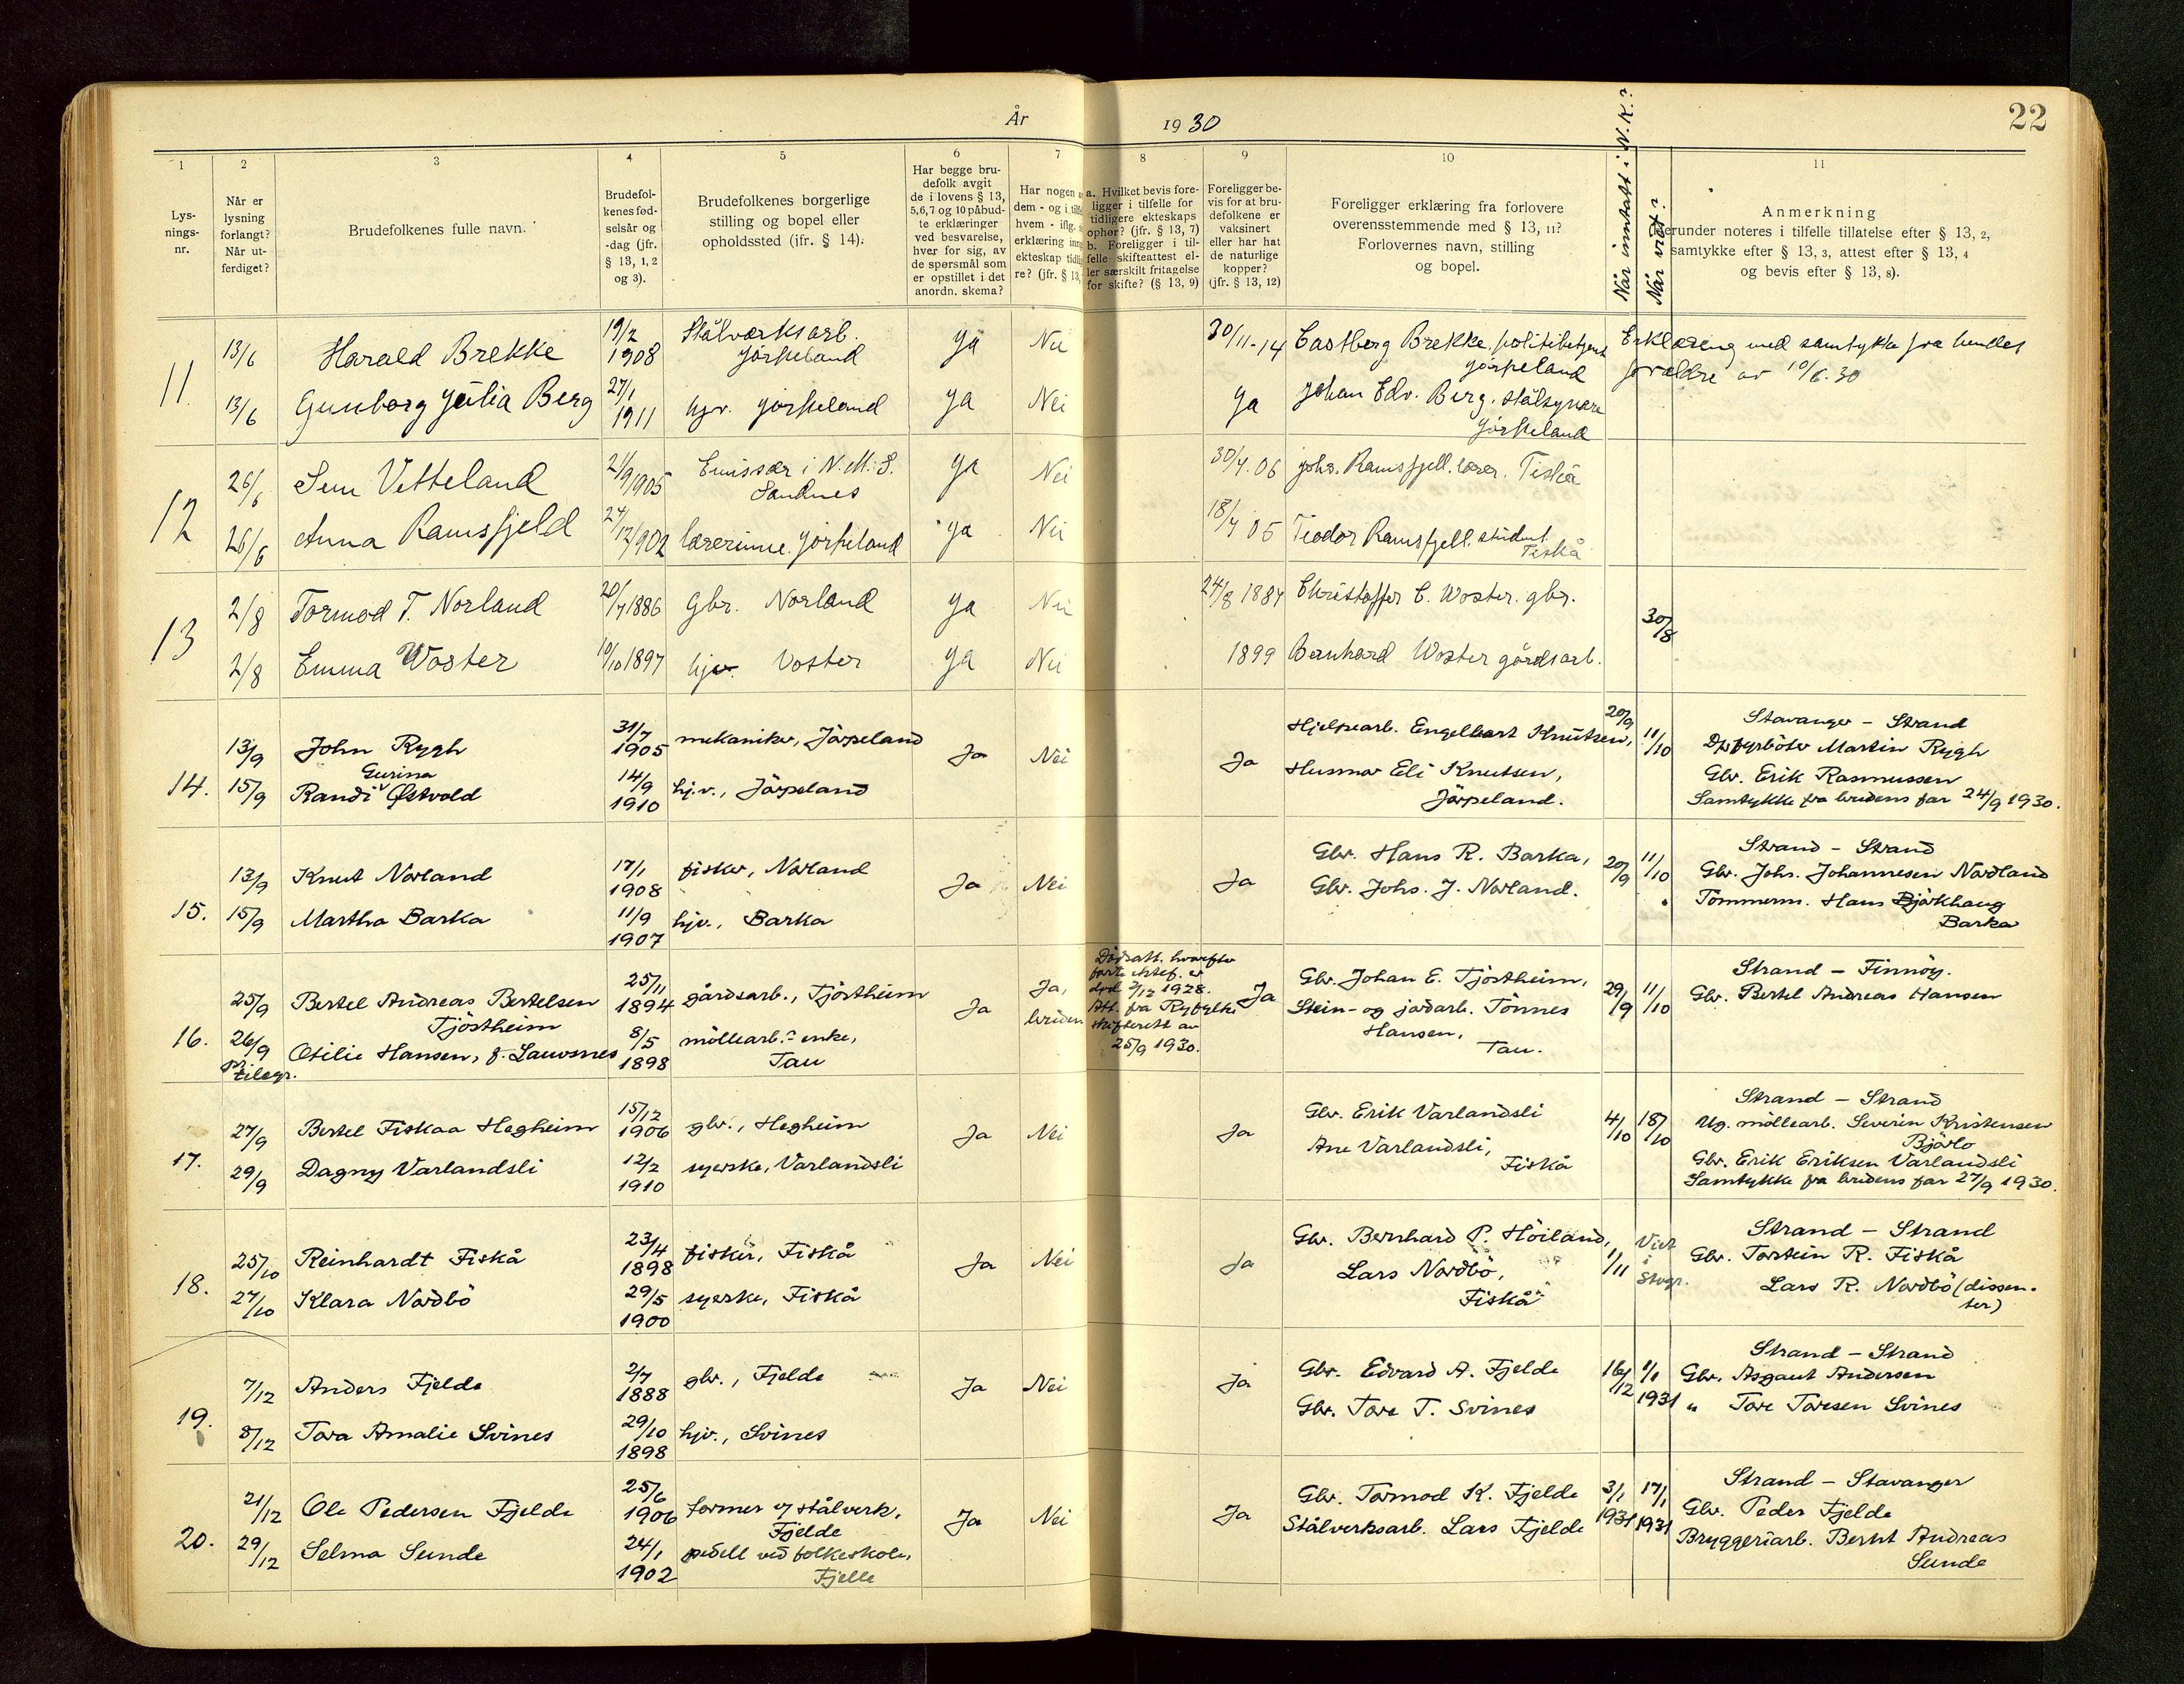 År 1930
22
1
Lys-
nings-
nr.
2
Når er
lysning
forlangt?
Når ut-
ferdiget?
3
Brudefolkenes fulle navn.
4
Brudefol-
kenes fød-
selsår og
-dag (jfr.
§ 13, 1, 2
og 3).
5
Brudefolkenes borgerlige
stilling og bopel eller
opholdssted (jfr. § 14).
6
Har begge bru-
defolk avgit
de i lovens § 13,
5,6,7 og 10 påbud-
te erklæringer
ved besvarelse,
hver for sig, av
de spørsmål som
er opstillet i det
anordn. skema?
7
Har nogen
dem - og i
hvem - iflg.
erklæring
ekteskap
re? (jfr. § 13,
8
a. Hvilket bevis fore-
ligger i tilfelle for
tidligere ekteskaps
ophør? (jfr. § 13, 7)
b. Foreligger i til-
felle skifteattest el-
ler særskilt fritagelse
for skifte? (§ 13, 9)
9
Foreligger be-
vis for at bru-
defolkene er
vaksinert
eller har hat
de naturlige
kopper?
(jfr. § 13, 12)
10
Foreligger erklæring fra forlovere
overensstemmende med § 13, 11?
Forlovernes navn, stilling
og bopel.
Når inntatt i N.K.?
Når viet?
11
Anmerkning
Herunder noteres i tilfelle tillatelse efter § 13, 2,
samtykke efter § 13, 3, attest efter § 13, 4
og bevis efter § 13, 8).
11 13/6 Harald Brekke 19/2 1908 Stålverksarb. Jørpeland Ja Nei 30/11-14 Castberg Brekke, politibetjent Jørpeland Erklæring med samtykke fra hendes
13/6 Gunborg Julia Berg 27/1 1911 hjv. Jørpeland Ja Nei Ja Johan Edv. Berg. Jørpeland forældre av 10/6.30
12 26/6 Sem Vetteland 21/9 1905 Emissær i N.M.S. Sandnes Ja Nei 30/4.06 Johs. Ramsfjell. lærer. Fiskå
26/6 Anna Ramsfjeld 24/12 1902 lærerinne. Jørpeland Ja Nei 18/7 05 Teodor Ramsfjell. student Fiskå
13 2/8 Tormod T. Norland 20/7 1886 Gbr. Norland Ja Nei 24/8 1887 Christoffer C. Woster. gbr. 30/8
2/8 Emma Woster 10/10 1897 hjv. Voster Ja Nei 1899 Bernhard Woster gårdsarb.
14. 13/9 John Rygh 31/7 1905 mekaniker, Jörpeland Ja Nei Ja Hjelpearb. Engelbart Knutsen, 20/9 11/10 Stavanger - Strand
15/9 Randi Gurina Østvold 14/9 1910 hj.v., Jörpeland Husmor Eli Knutsen, Jörpeland. Dpfyrböter Martin Rygh
Gbr. Erik Rasmussen
Samtykke fra brudens far 24/9 1930.
15. 13/9 Knut Norland 17/1 1908 fisker, Norland Ja Nei Ja Gbr. Hans R. Barka, 20/9 11/10 Strand - Strand
15/9 Martha Barka 11/9 1907 hjv., Barka Gbr. Johs. J. Norland. Gbr. Johs. Johannesen Nordland
Tömmerm. Hans Björkhaug
Barka
16. 25/9 Bertel Andreas Bertelsen Tjöstheim 25/11 1894 gårdsarb., Tjöstheim Ja Ja, bruden Dödsatt. hvorefter
förste ektef. er
död 3/12 1928.
Att. fra Ryfylke
skifterett av
25/9 1930. Ja Gbr. Johan E. Tjöstheim, 29/9 11/10 Strand - Finnöy.
26/9 pr. telegr. Otilie Hansen, f. Lauvsnes 8/5 1898 möllearb.- enke, Tau Stein- og jordarb. Tönnes Hansen, Tau. Gbr. Bertel Andreas Hansen
17. 27/9 Bertel Fiskaa Hegheim 15/12 1906 gbr., Hegheim Ja Nei Ja Gbr. Erik Varlandsli 4/10 18/10 Strand - Strand
29/9 Dagny Varlandsli 12/2 1910 syerske, Varlandsli Ane Varlandsli, Fiskå Ug. möllearb. Severin Kristensen
Björlo
Gbr. Erik Eriksen Varlandsli
Samtykke fra brudens far 27/9 1930.
18. 25/10 Reinhardt Fiskå 23/4 1898 fisker, Fiskå Ja Nei Ja Gbr. Bernhard P. Höiland, 1/11 Viet i Stvgr. Strand - Strand
27/10 Klara Nordbö 29/5 1900 syerske, Fiskå Lars Nordbö, Fiskå Gbr. Torstein R. Fiskå
Lars R. Nordbö (dissen-
ter)
19. 7/12 Anders Fjelde 2/7 1888 gbr., Fjelde Ja Nei Ja Gbr. Edvard A. Fjelde 16/12 1/1 1931 Strand - Strand
8/12 Tora Amalie Svines 29/10 1898 hjv., Svines Gbr. Tore T. Svines Gbr. Asgaut Andersen
" Tore Toresen Svines
20. 21/12 Ole Pedersen Fjelde 25/6 1906 former v/ stålverk, Fjelde Ja Nei Ja Gbr. Tormod K. Fjelde 3/1 1931 17/1 1931 Strand - Stavanger
29/12 Selma Sunde 24/1 1902 pedell ved folkeskole, Fjelle Stålverksarb. Lars Fjelde Gbr. Peder Fjelde
Bryggeriarb. Bernt Andreas
Sunde